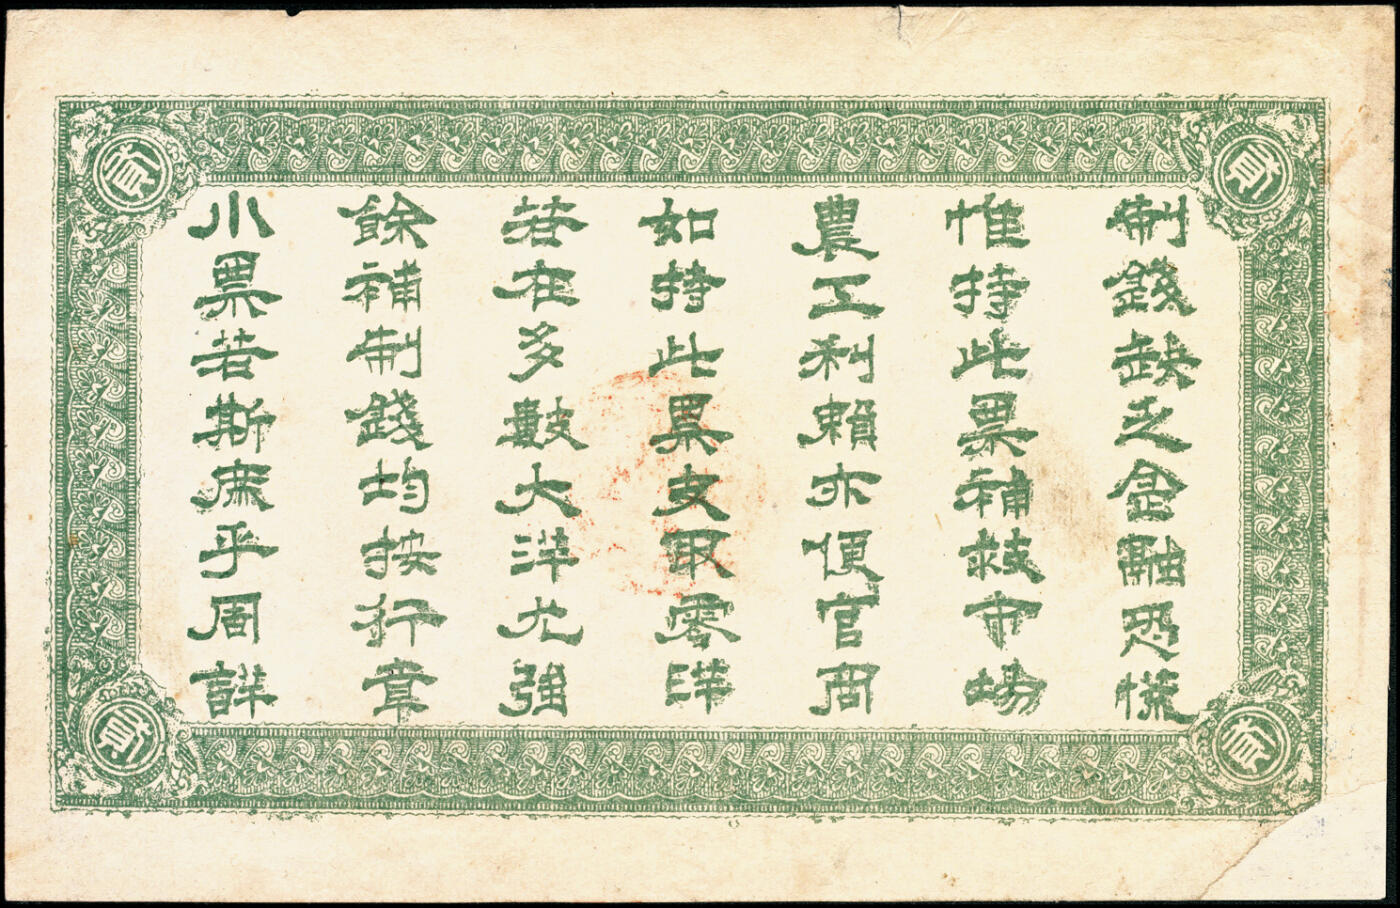 制錢缺乏金融恐慌
惟持此票補救市場
農工利賴亦便官商
如持此票支取零洋
若在多數大洋尤強
餘補制錢均按行章
小票若斯庶乎周詳
貳
貳
貳
貳